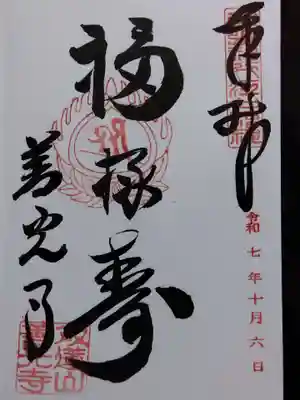 奉拝
令和七年十月六日
福禄寿
善光寺
善光寺